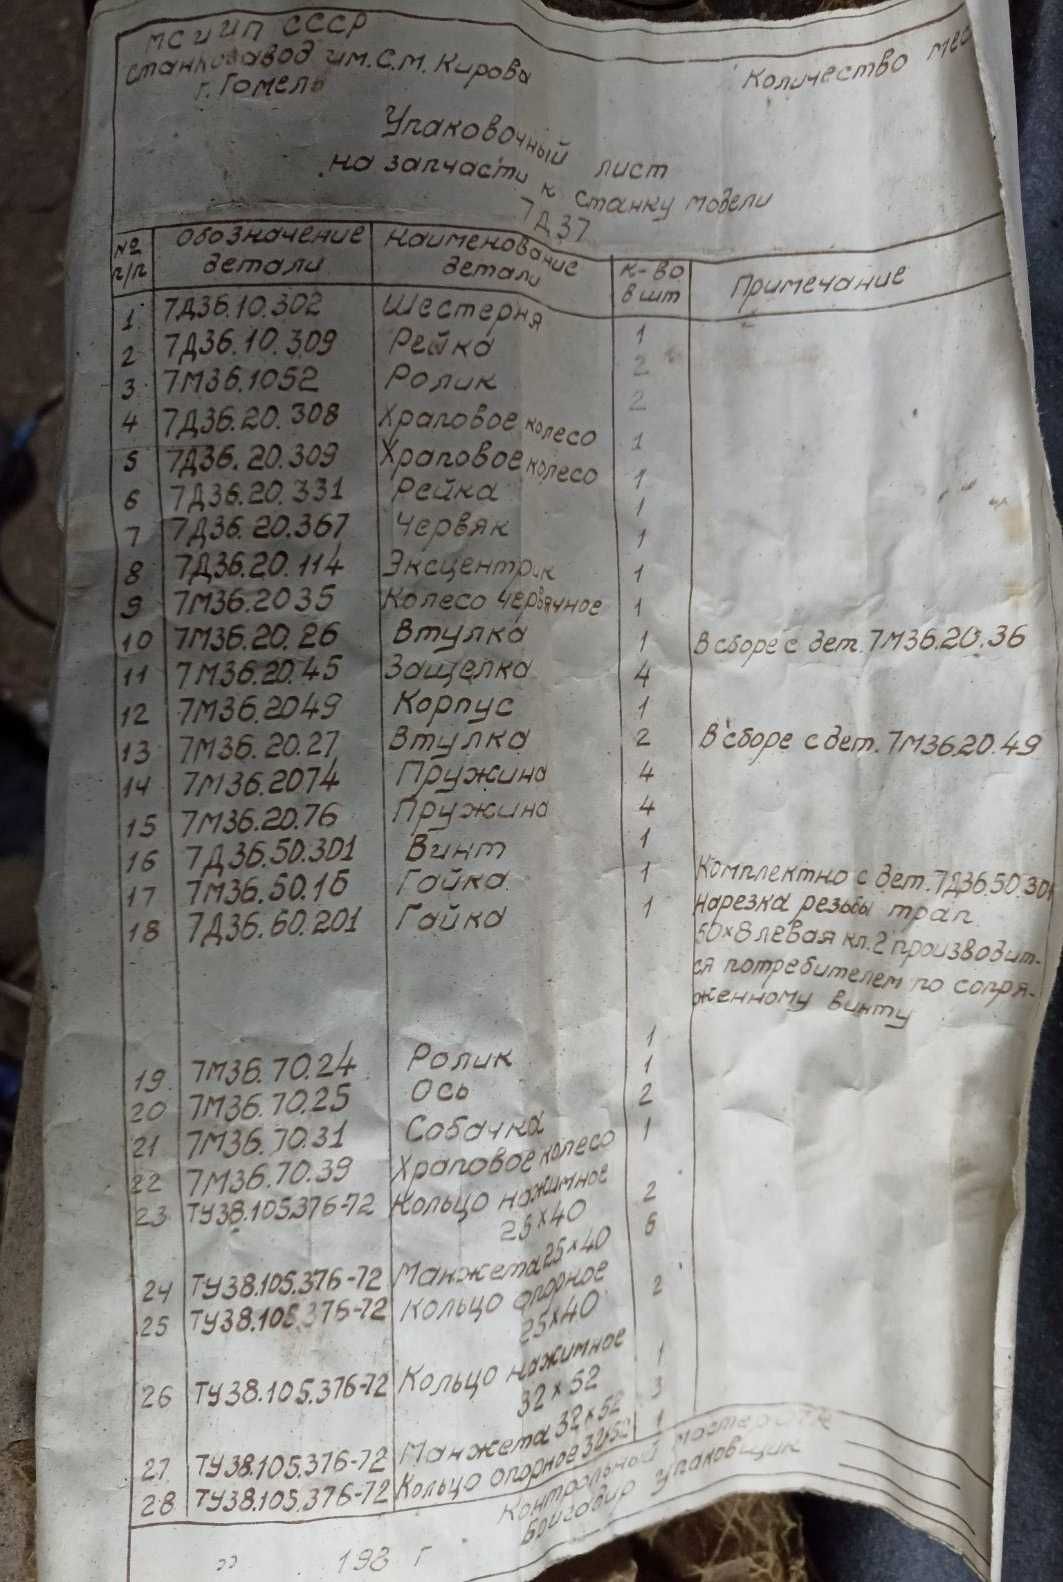 МС и ИП СССР
Станкозавод им. С.М. Кирова
г. Гомель
Количество мес
Упаковочный лист
на запчасти к станку модели
7Д37
№ п/п Обозначение детали Наименование детали К-во в шт Примечание
1 7Д36.10.302 Шестерня 1
2 7Д36.10.309 Рейка 2
3 7М36.1052 Ролик 2
4 7Д36.20.308 Храповое колесо 1
5 7Д36.20.309 Храповое колесо 1
6 7Д36.20.331 Рейка 1
7 7Д36.20.367 Червяк 1
8 7Д36.20.114 Эксцентрик 1
9 7М36.2035 Колесо червячное 1
10 7М36.20.26 Втулка 1 В сборе с дет. 7М36.20.36
11 7М36.20.45 Защелка 4
12 7М36.2049 Корпус 1
13 7М36.20.27 Втулка 2 В сборе с дет. 7М36.20.49
14 7М36.2074 Пружина 4
15 7М36.20.76 Пружина 4
16 7Д36.50.301 Винт 1
17 7М36.50.16 Гайка 1 Комплектно с дет. 7Д36.50.301
18 7Д36.60.201 Гайка 1 Нарезка резьбы трап
50×8 левая кл. 2 производит-
ся потребителем по сопря-
женному винту
19 7М36.70.24 Ролик 1
20 7М36.70.25 Ось 1
21 7М36.70.31 Собачка 2
22 7М36.70.39 Храповое колесо 1
23 ТУ38.105.376-72 Кольцо нажимное
25×40 2
24 ТУ38.105.376-72 Манжета 25×40 6
25 ТУ38.105.376-72 Кольцо опорное
25×40 2
26 ТУ38.105.376-72 Кольцо нажимное
32×52 1
27 ТУ38.105.376-72 Манжета 32×52 3
28 ТУ38.105.376-72 Кольцо опорное 32×52 1
Контрольный мастер ОТК
Бригадир упаковщик
" 198 г